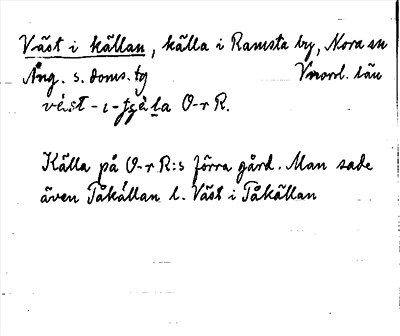 Väst i källan, källa i Ramsta by, Nora sn
Ång. s. doms. tg Vnorrl. län
O-r R.
Källa på O-r R:s förra gård. Man sade
även Tåkällan l. Väst i Tåkällan